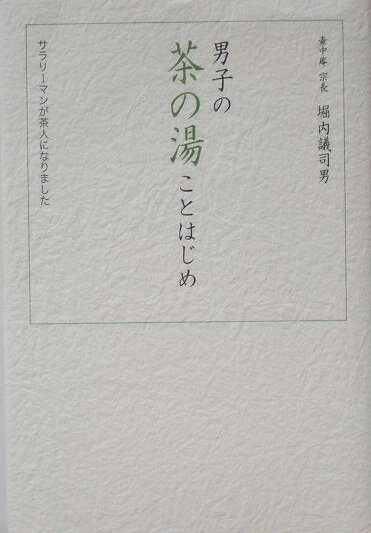 壷中庵 宗長 堀内議司男
男子の
茶の湯
ことはじめ
サラリーマンが茶人になりました